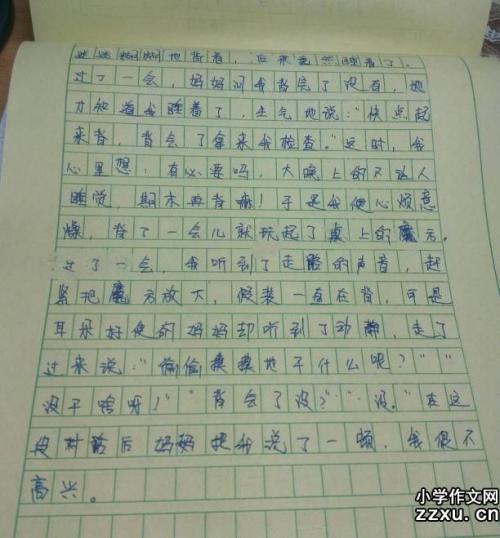 迷迷糊糊地背着，但最竟然睡着了。
过了一会，妈妈问我背完了没有，她
才知道我睡着了，生气地说："快点起
来背，背会了拿来我检查。"这时，我
心里想：有必要吗，大晚上的又不让人
睡觉，期末再背嘛！于是我便心烦意
燥，背了一会儿就玩起了桌上的魔方。
过了一会，我听到了走路的声音，赶
紧把魔方放大，假装一直在背，可是
耳朵好使的妈妈却听到了动静，走了
过来说："偷偷摸摸地干什么呢？""
没干啥呀！""背会了没？""没。"在这
段对话后妈妈把我说了一顿，我很不
高兴。
小学作文网
zzxu.cn